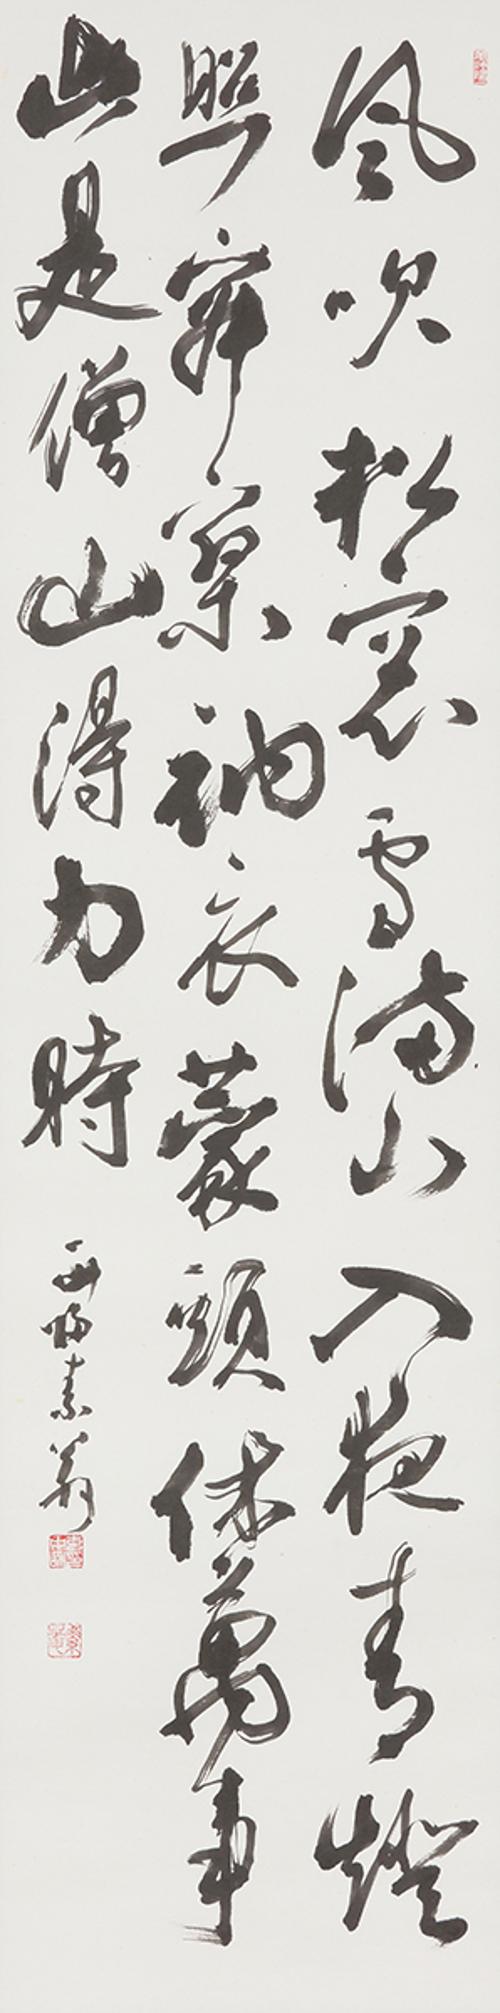 風吹松窓雪滿山入夜青燈
照寂寞衲衣蒙頭休萬事
此是僧山得力時
素翁